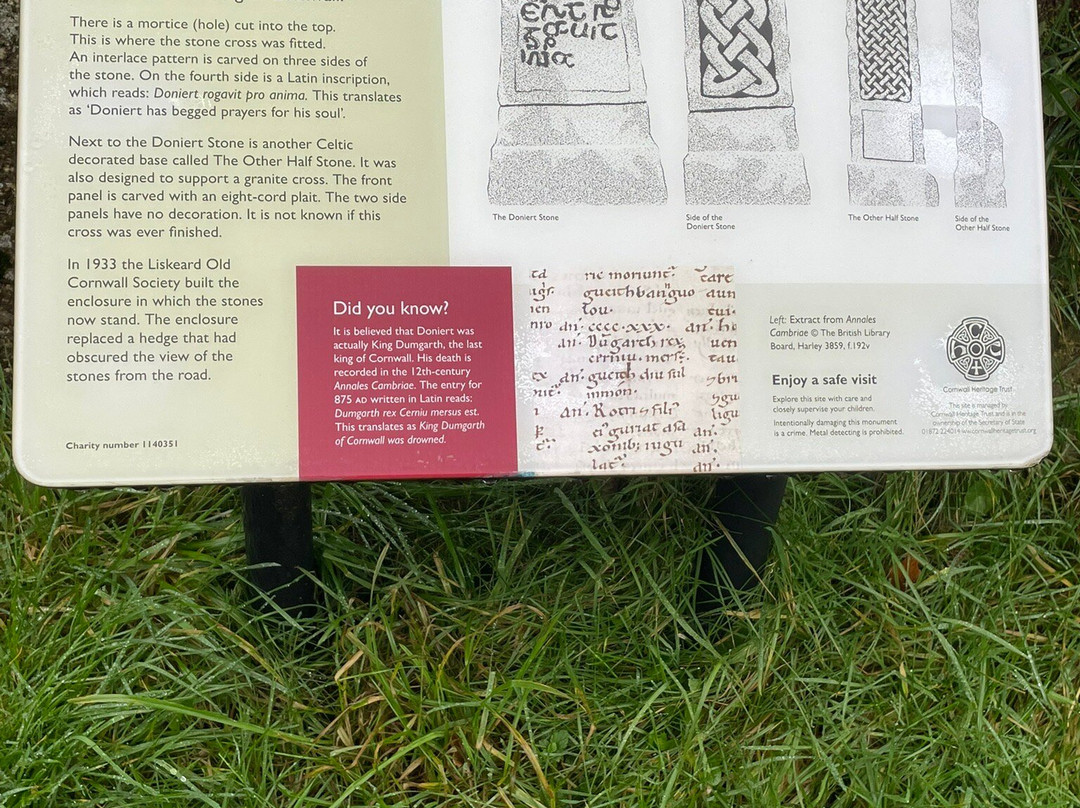 There is a mortice (hole) cut into the top.
This is where the stone cross was fitted.
An interlace pattern is carved on three sides of
the stone. On the fourth side is a Latin inscription,
which reads: Doniert rogavit pro anima. This translates
as ‘Doniert has begged prayers for his soul’.
Next to the Doniert Stone is another Celtic
decorated base called The Other Half Stone. It was
also designed to support a granite cross. The front
panel is carved with an eight-cord plait. The two side
panels have no decoration. It is not known if this
cross was ever finished.
In 1933 the Liskeard Old
Cornwall Society built the
enclosure in which the stones
now stand. The enclosure
replaced a hedge that had
obscured the view of the
stones from the road.
Charity number 1140351
Did you know?
It is believed that Doniert was
actually King Dumgarth, the last
king of Cornwall. His death is
recorded in the 12th-century
Annales Cambriae. The entry for
875 AD written in Latin reads:
Dumgarth rex Cerniu mersus est.
This translates as King Dumgarth
of Cornwall was drowned.
The Doniert Stone
Side of the
Doniert Stone
The Other Half Stone
Side of the
Other Half Stone
gueithbanguo
an. cccc.xxx.
Left: Extract from Annales
Cambriae © The British Library
Board, Harley 3859, f.192v
Enjoy a safe visit
Explore this site with care and
closely supervise your children.
Intentionally damaging this monument
is a crime. Metal detecting is prohibited.
Cornwall Heritage Trust
This site is managed by
Cornwall Heritage Trust and is in the
ownership of the Secretary of State
01872 224014 www.cornwallheritagetrust.org